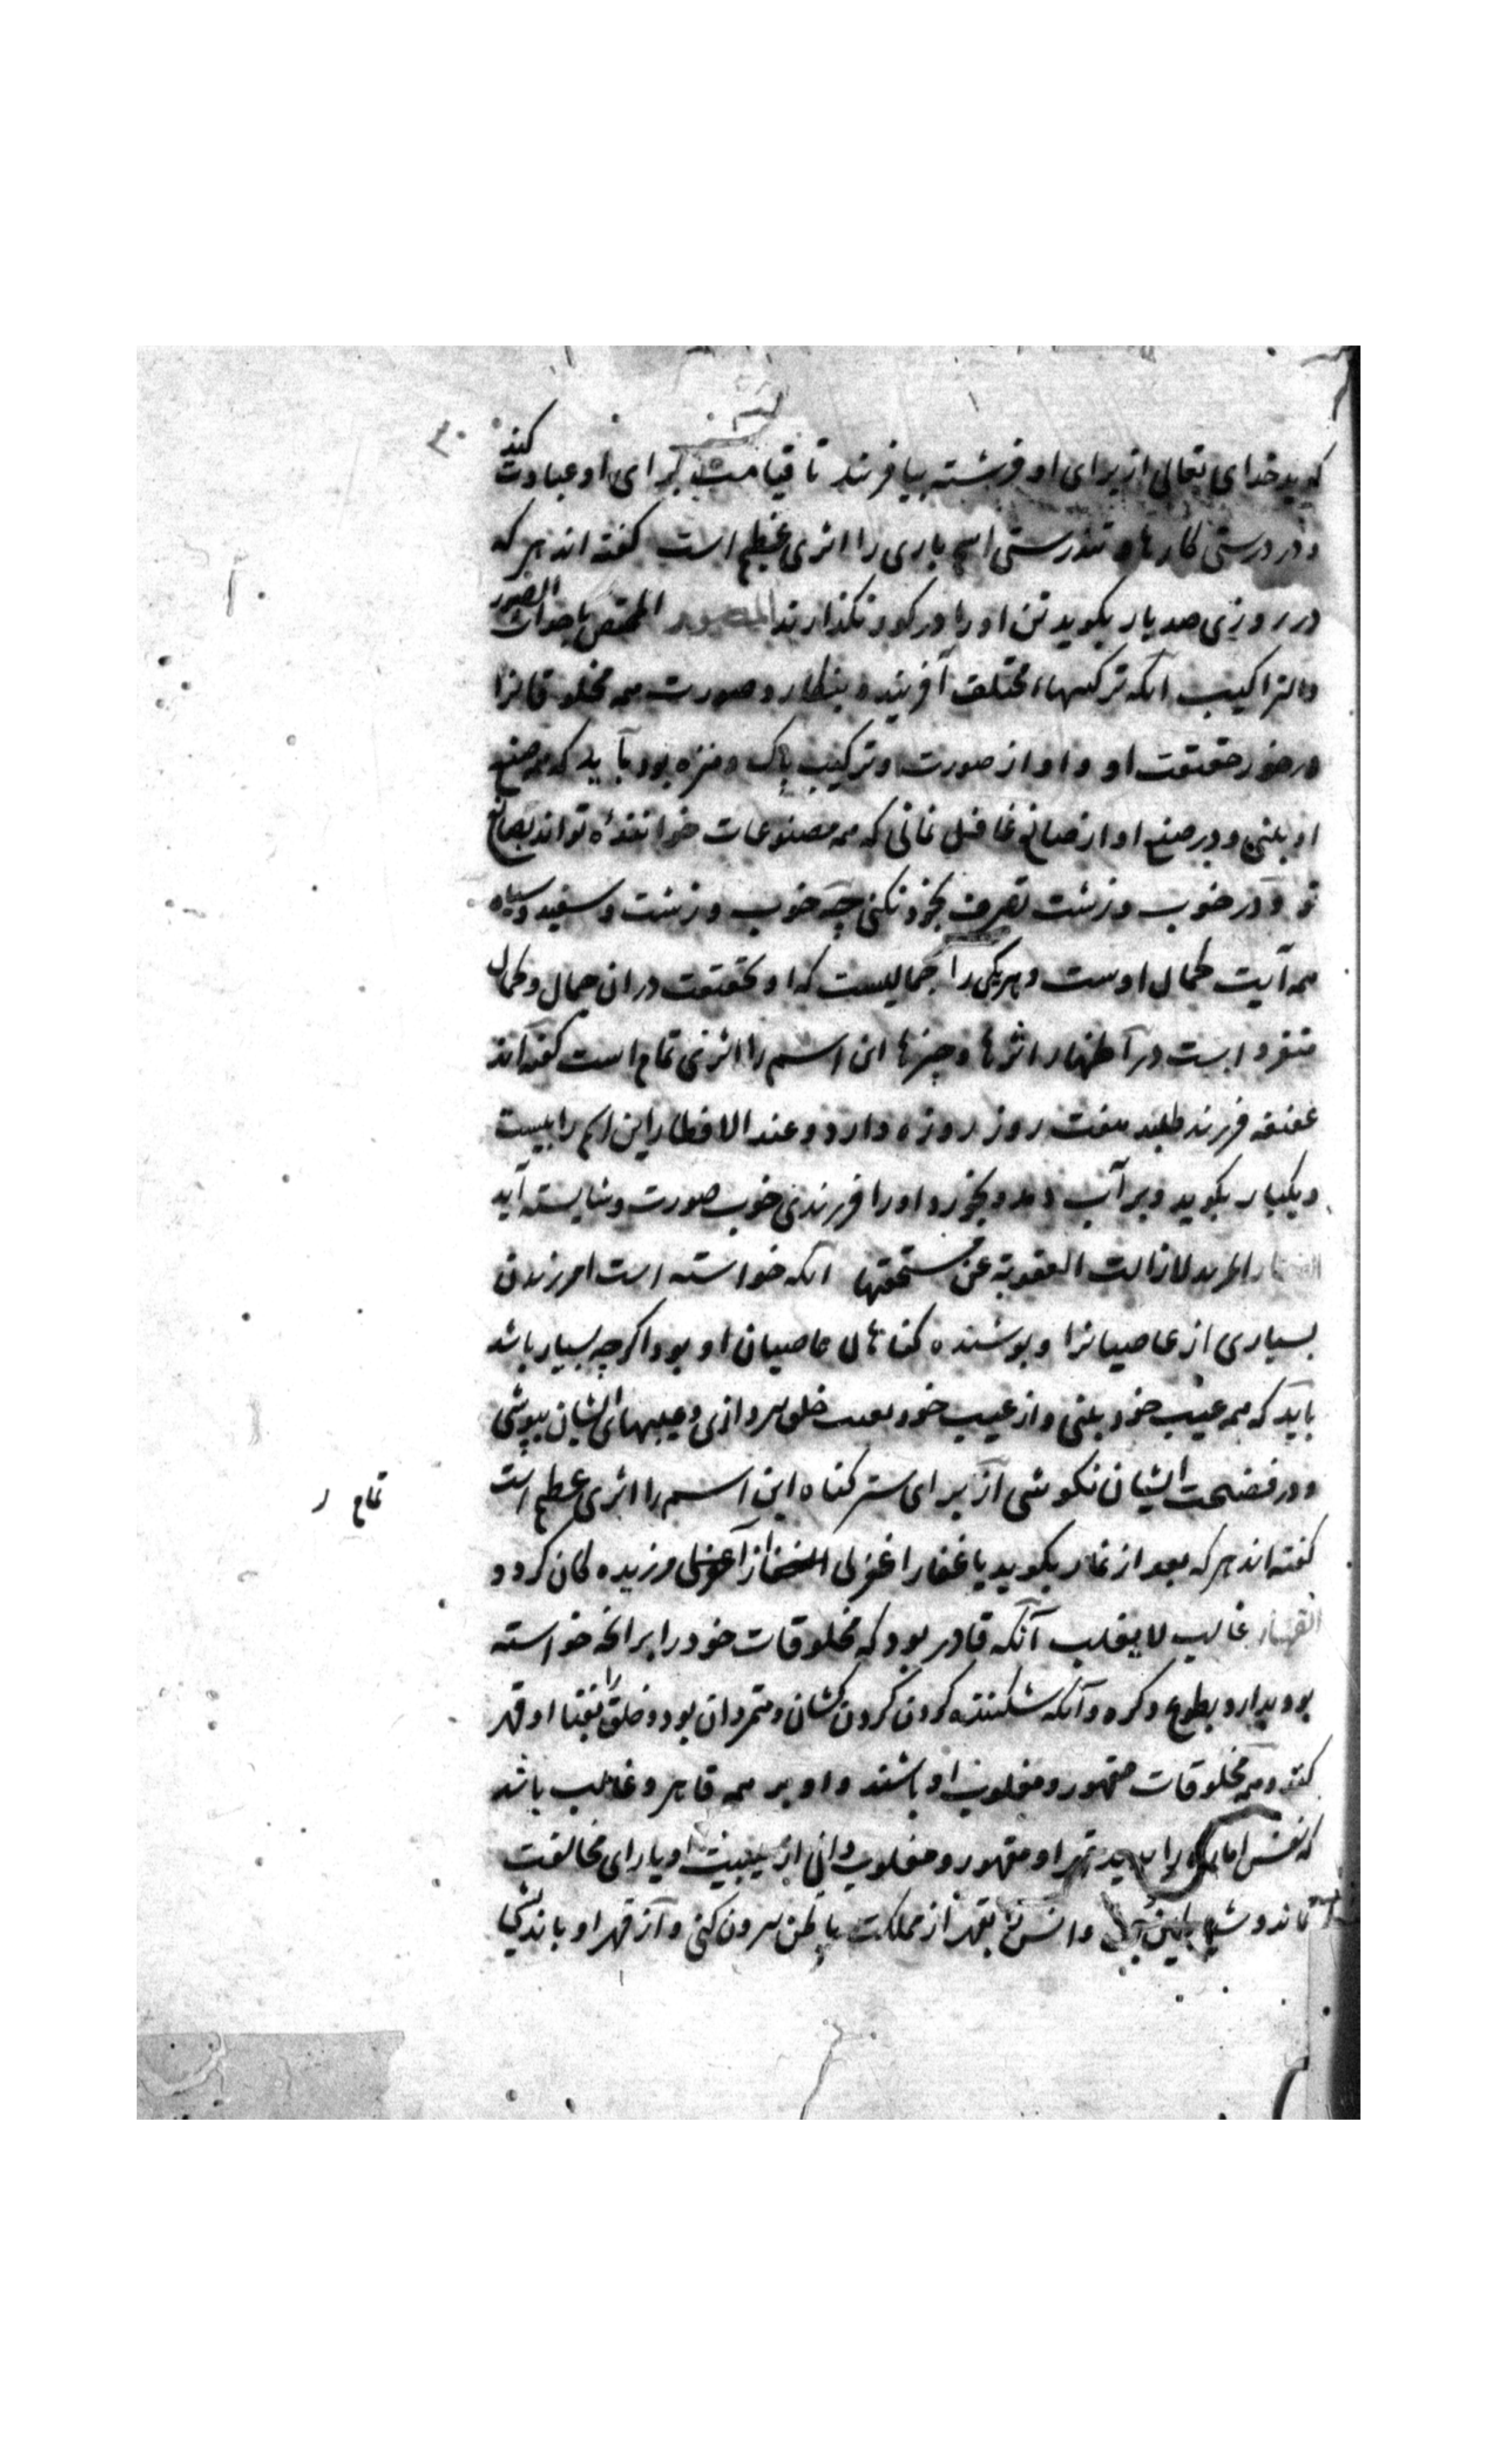 کوید خدای تعالی از برای او فرشته بیافریند تا قیامت برای او عبادت کند
و در درستی کارها و تندرستی اسم باری را اثری عظیم است کفته اند هر که
در روزی صد بار بکوید تن او را در کور نکذارند المصور المختص باحداث الصور
والتراکیب آنکه ترکیبهاء مختلف آفریند و بنکارد صورت همه مخلوقانرا
در خور حقیقت او و او از صورت و ترکیب پاک و منزه بود باید که همه صنع
او بینی و در صنع او از صانع غافل نمانی که همه مصنوعات خوانندهٔ تواند بصانع
تو و در خوب و زشت تصرف بخود نکنی چه خوب و زشت و سفید و سیاه
همه آیت کمال اوست و هر یکی را جمالیست که او بحقیقت در ان جمال و کمال
متفرد است در اظهار اثرها و چیزها این اسم را اثری تمام است کفته اند
عقیقه فرزند طلبد هفت روز روزه دارد و عند الافطار این اسم را بیست
و یکبار بکوید و بر آب دمد و بخورد او را فرزندی خوب صورت و شایسته آید
الغفار المرید لازالت العقوبة عن مستحقها آنکه خواسته است امرزیدن
بسیاری از عاصیانرا و پوشنده کناهان عاصیان او بود اکرچه بسیار باشد
باید که همه عیب خود بینی و از عیب خود بعیب خلق نپردازی و عیبهای ایشان بپوشی
و در فضیحت ایشان نکوشی از برای ستر کناه این اسم را اثری عظیم است
تمام ر
کفته اند هر که بعد از نماز بکوید یا غفار اغفرلی از آمرزیده کان کردد
القهار غالب لا یغلب آنکه قادر بود که مخلوقات خود را بر آنچه خواسته
بود بدارد بطوع و کره و آنکه شکننده کردن کردن کشان و متمردان بود و خلق را بفنا او قهر
کند و همه مخلوقات مقهور و مغلوب او باشند و او بر همه قاهر و غالب باشد
که نفس اماره را قهر او مقهور و مغلوب دانی از هیبت او یارای مخالفت
نماند و بقهر از مملکت باطن بیرون کنی و از قهر او باندیشی